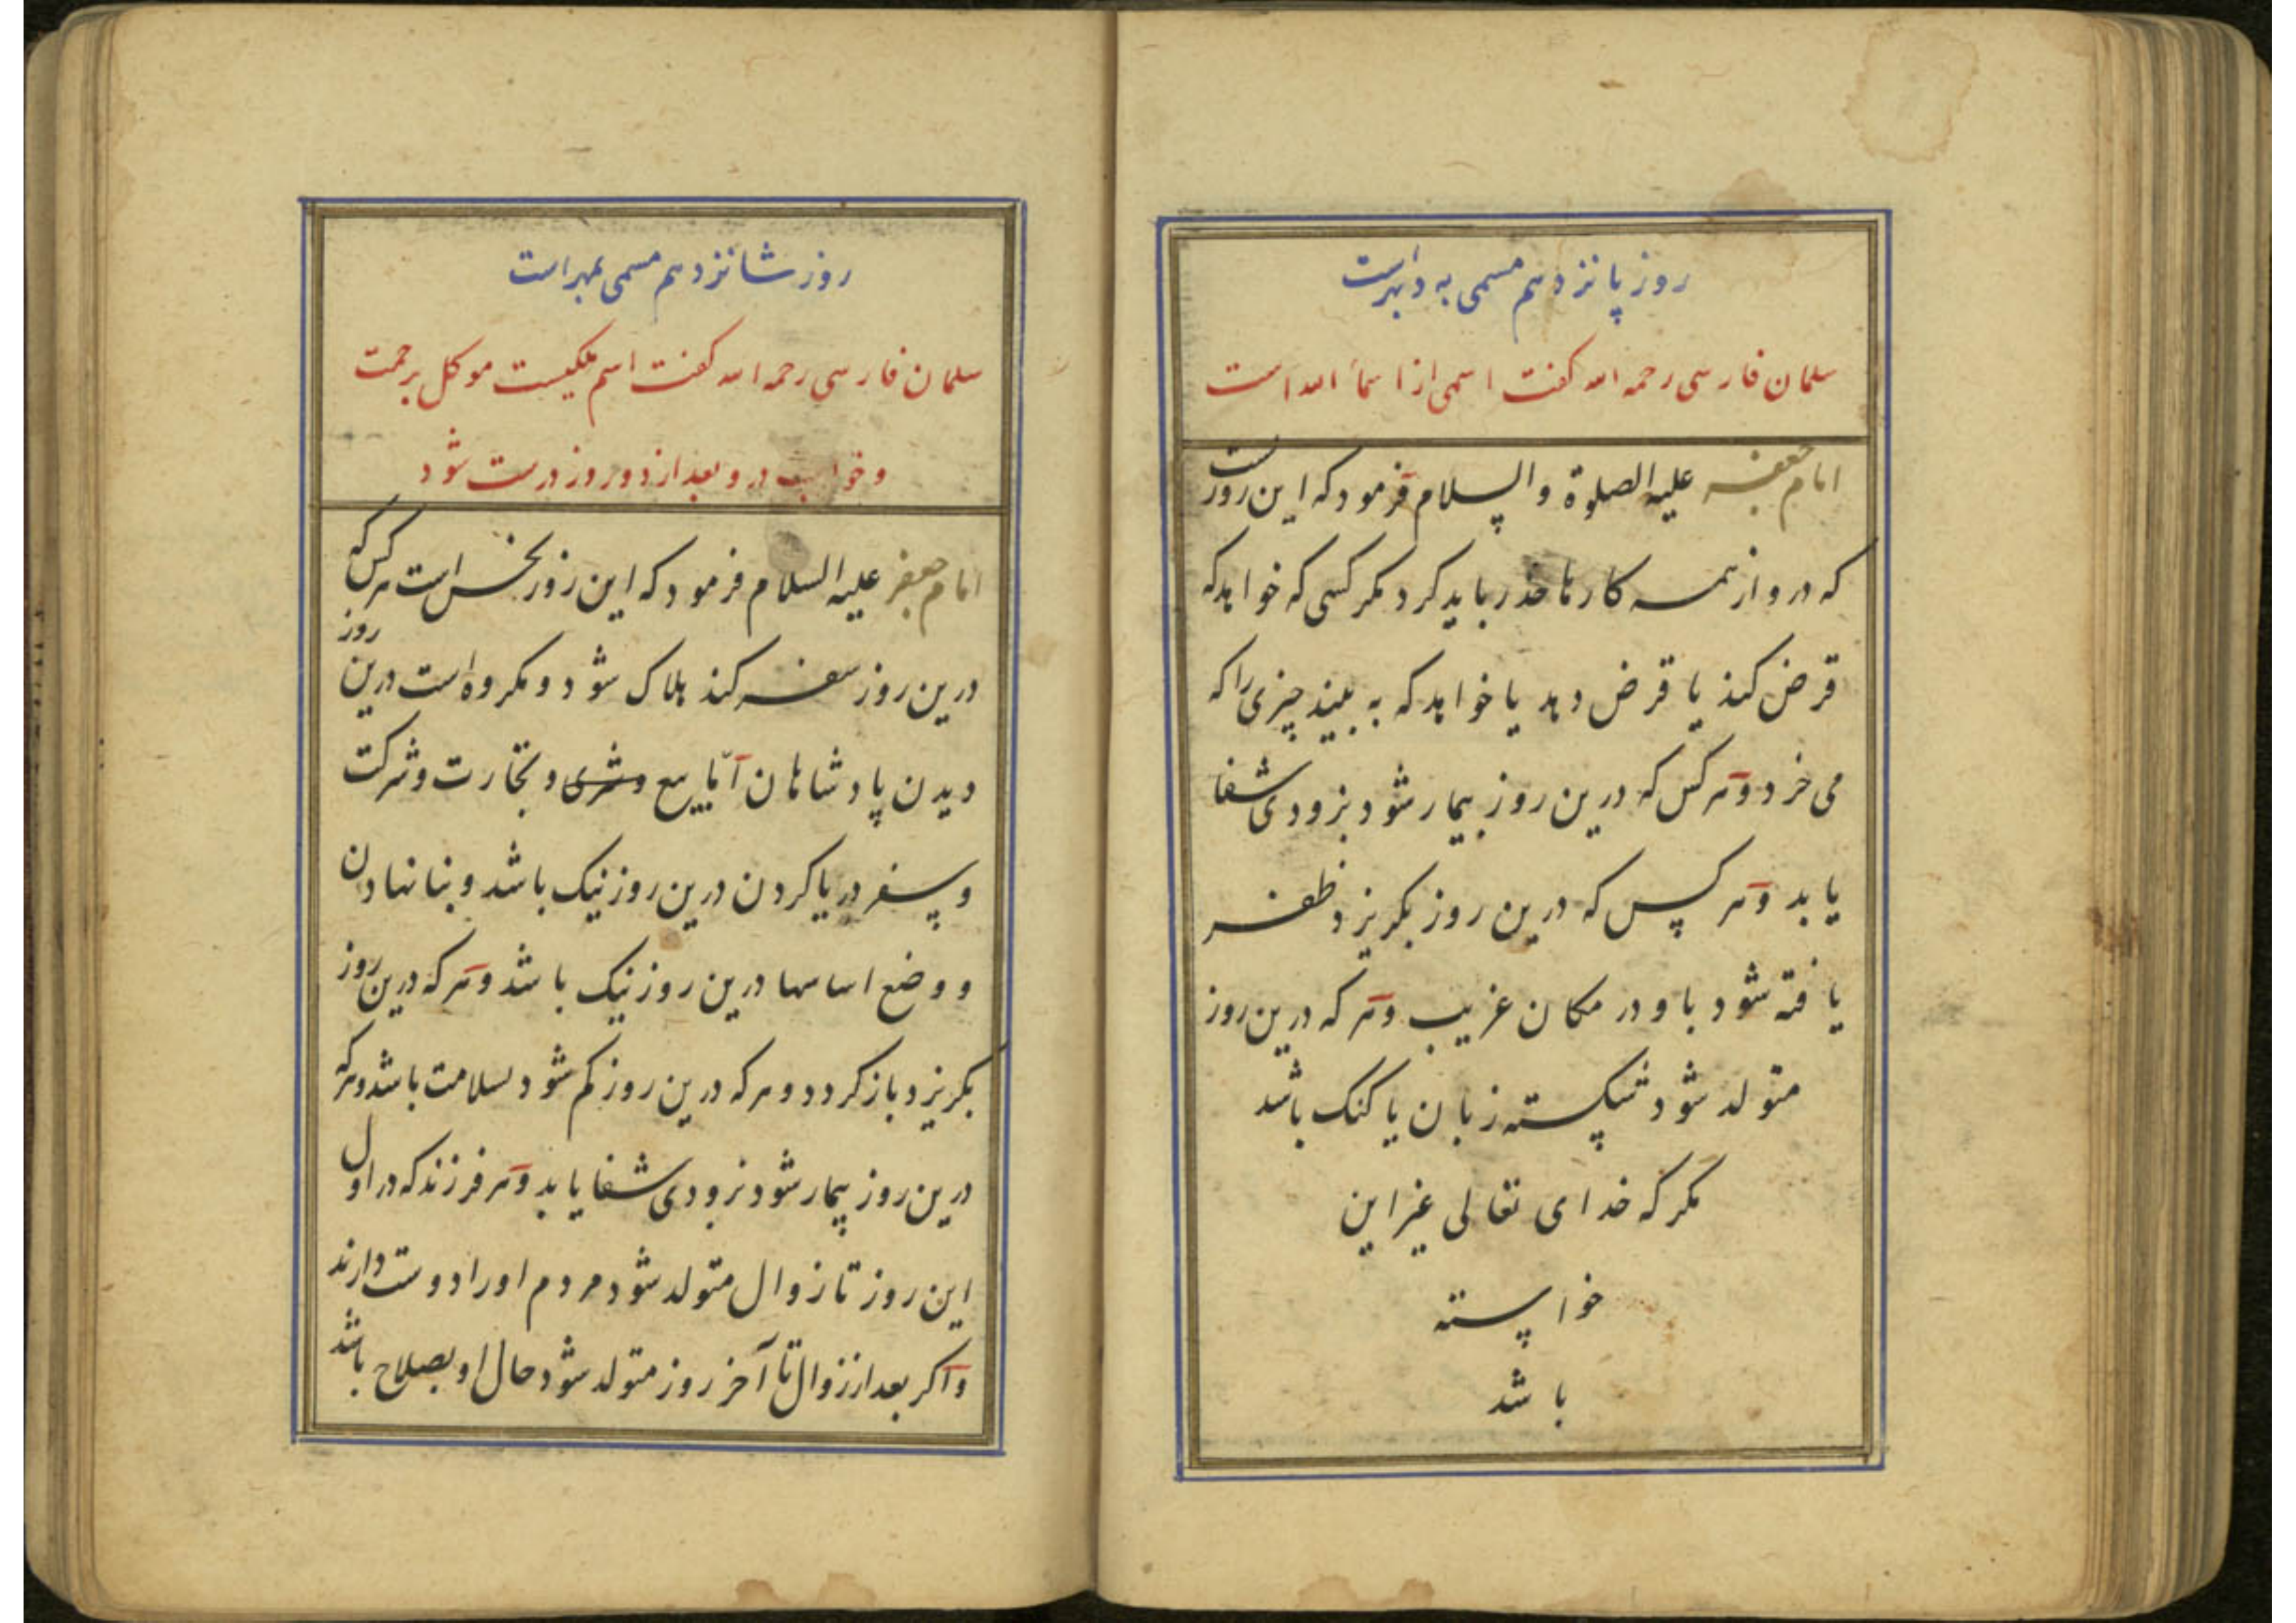 روز پانزدهم مسمی به دیبمهرست
سلمان فارسی رحمه الله کفت اسمی از اسماء الله است
امام جعفر علیه الصلوة والسلام فرمود که این روزست
که درو از همه کارها حذر باید کرد مکر کسی که خواهد که
قرض کند یا قرض دهد یا خواهد که به بیند چیزی را که
می خرد و هر کس که درین روز بیمار شود بزودی شفا
یابد و هر کس که درین روز بکریزد ظفر
یافته شود باو در مکان غریب و هر که درین روز
متولد شود شکسته زبان یا کنک باشد
مکر که خدای تعالی غیر این
خواسته
باشد
روز شانزدهم مسمی بمهر است
سلمان فارسی رحمه الله کفت اسم ملکیست موکل برحمت
و خواب درو بعد از دو روز درست شود
امام جعفر علیه السلام فرمود که این روز نحس است هر کس که
درین روز سفر کند هلاک شود و مکروه است درین روز
دیدن پادشاهان اما بیع و شری و تجارت و شرکت
و سفر دریا کردن درین روز نیک باشد و بنا نهادن
و وضع اساسها درین روز نیک باشد و هر که درین روز
بکریزد باز کردد و هر که درین روز کم شود بسلامت باشد و هر که
درین روز بیمار شود بزودی شفا یابد و هر فرزند که در اول
این روز تا زوال متولد شود مردم او را دوست دارند
و اکر بعد از زوال تا آخر روز متولد شود حال او بصلاح باشد